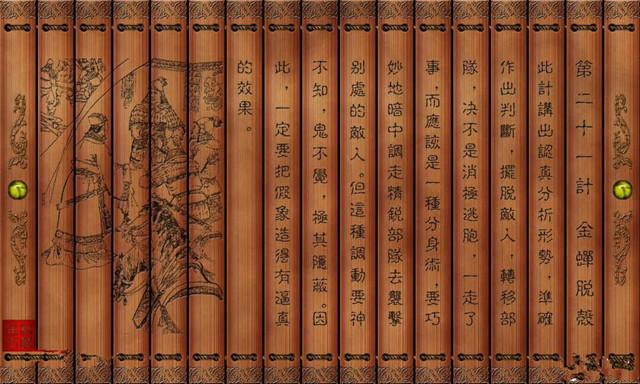 第二十一計 金蟬脱殼
此計講出認真分析形勢，準確
作出判斷，擺脱敵人，轉移部
隊，决不是消極逃胞，一走了
事，而應該是一種分身術，要巧
妙地暗中調走精鋭部隊去襲擊
别處的敵人。但這種調動要神
不知，鬼不覺，極其隱蔽。因
此，一定要把假象造得有逼真
的效果。